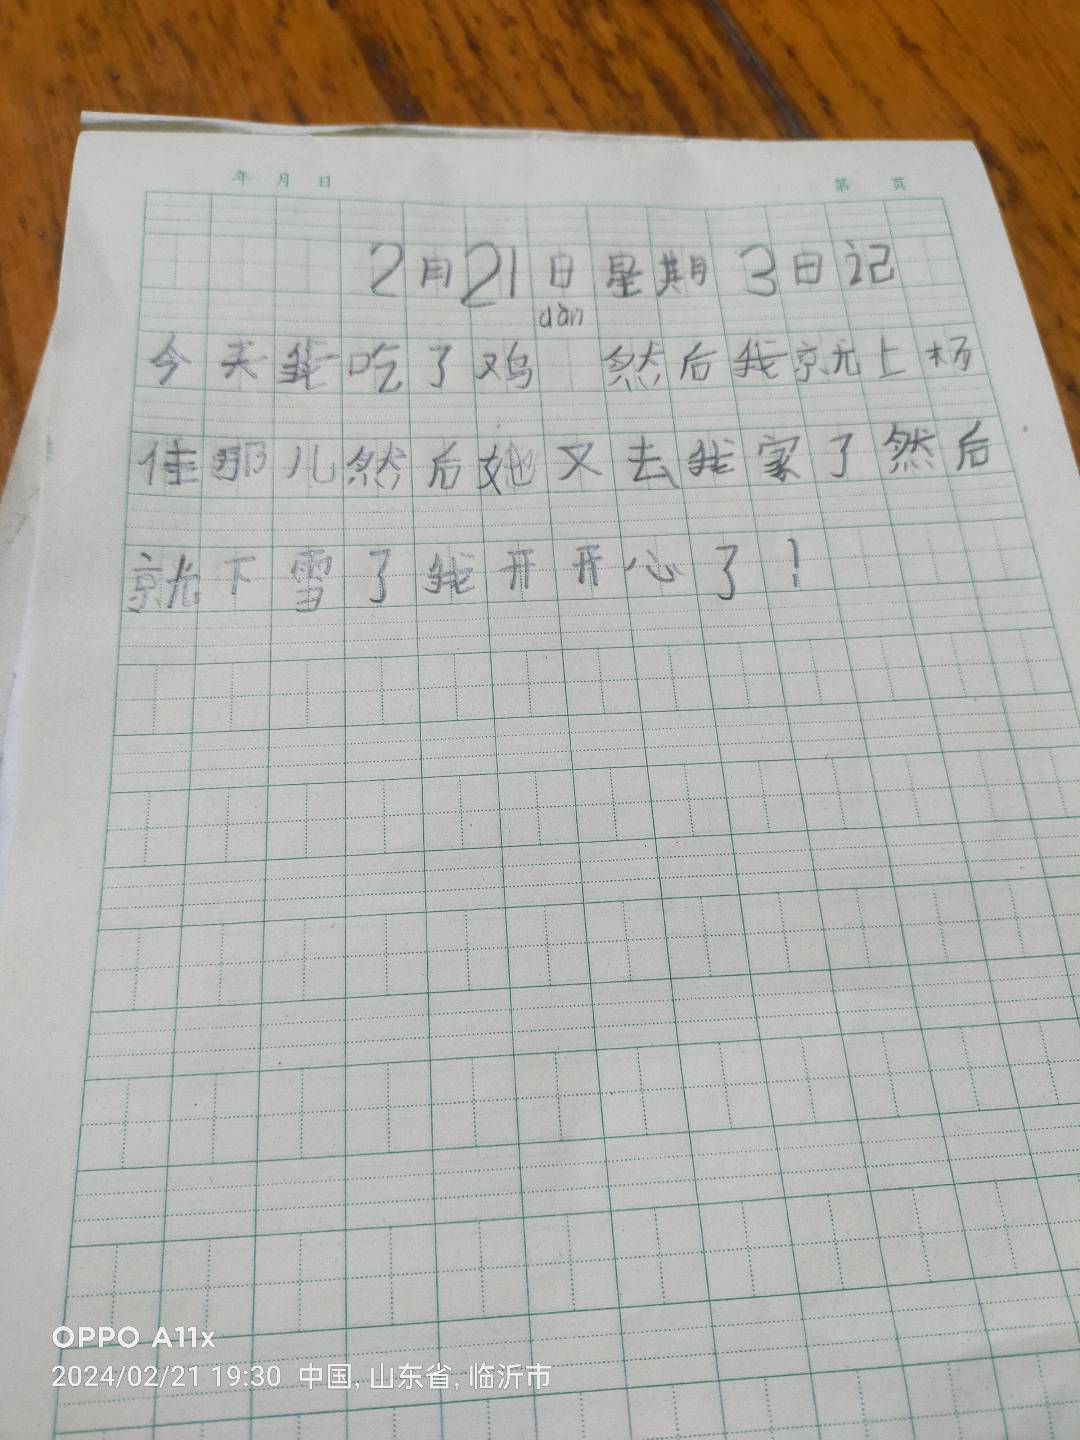 年 月 日 第 页
2月21日星期3日记
dàn
今天我吃了鸡 然后我就上杨
佳那儿然后她又去我家了然后
就下雪了我开开心了！
OPPO A11x
2024/02/21 19:30 中国, 山东省, 临沂市